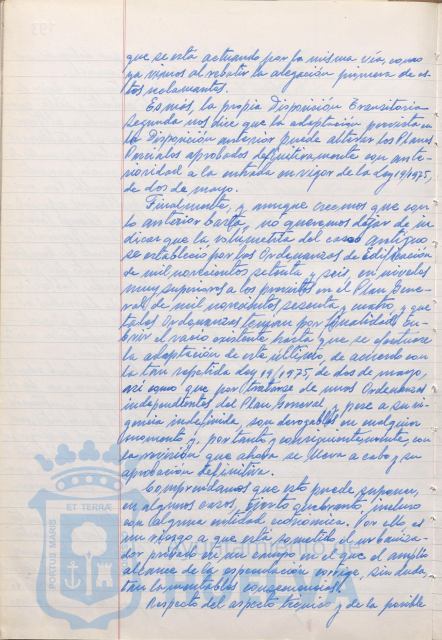 que se está actuando por la misma vía, como
ya vimos al rebatir la alegación primera de es-
tos reclamantes.
Es más, la propia Disposición Transitoria
segunda nos dice que la adaptación prevista en
la Disposición anterior puede alterar los Planes
Parciales aprobados definitivamente con ante-
rioridad a la entrada en vigor de la Ley 19/1975,
de dos de mayo.
Finalmente, y aunque creemos que con
lo anterior basta, no queremos dejar de in-
dicar que la volumetría del casco antiguo
se estableció por las Ordenanzas de Edificación
de mil novecientos setenta y seis, en niveles
muy superiores a los previstos en el Plan Gene-
ral de mil novecientos sesenta y cuatro, y que
tales Ordenanzas tenían por finalidad cu-
brir el vacío existente hasta que se efectuare
la adaptación de este último, de acuerdo con
la tan repetida Ley 19/1975, de dos de mayo,
así como que por tratarse de unas Ordenanzas
independientes del Plan General, y pese a su vi-
gencia indefinida, son derogables en cualquier
momento y, por tanto y consiguientemente, con
la revisión que ahora se lleva a cabo y su
aprobación definitiva.
Comprendemos que esto puede suponer,
en algunos casos, cierto quebranto, incluso
con alguna entidad económica. Por ello es
un riesgo a que está sometido el urbaniza-
dor privado en un campo en el que el amplio
alcance de la especulación corrige, sin duda,
tan lamentables consecuencias.
Respecto del aspecto técnico y de la posible
PORTUS MARIS
ET TERRAE
HUELVA